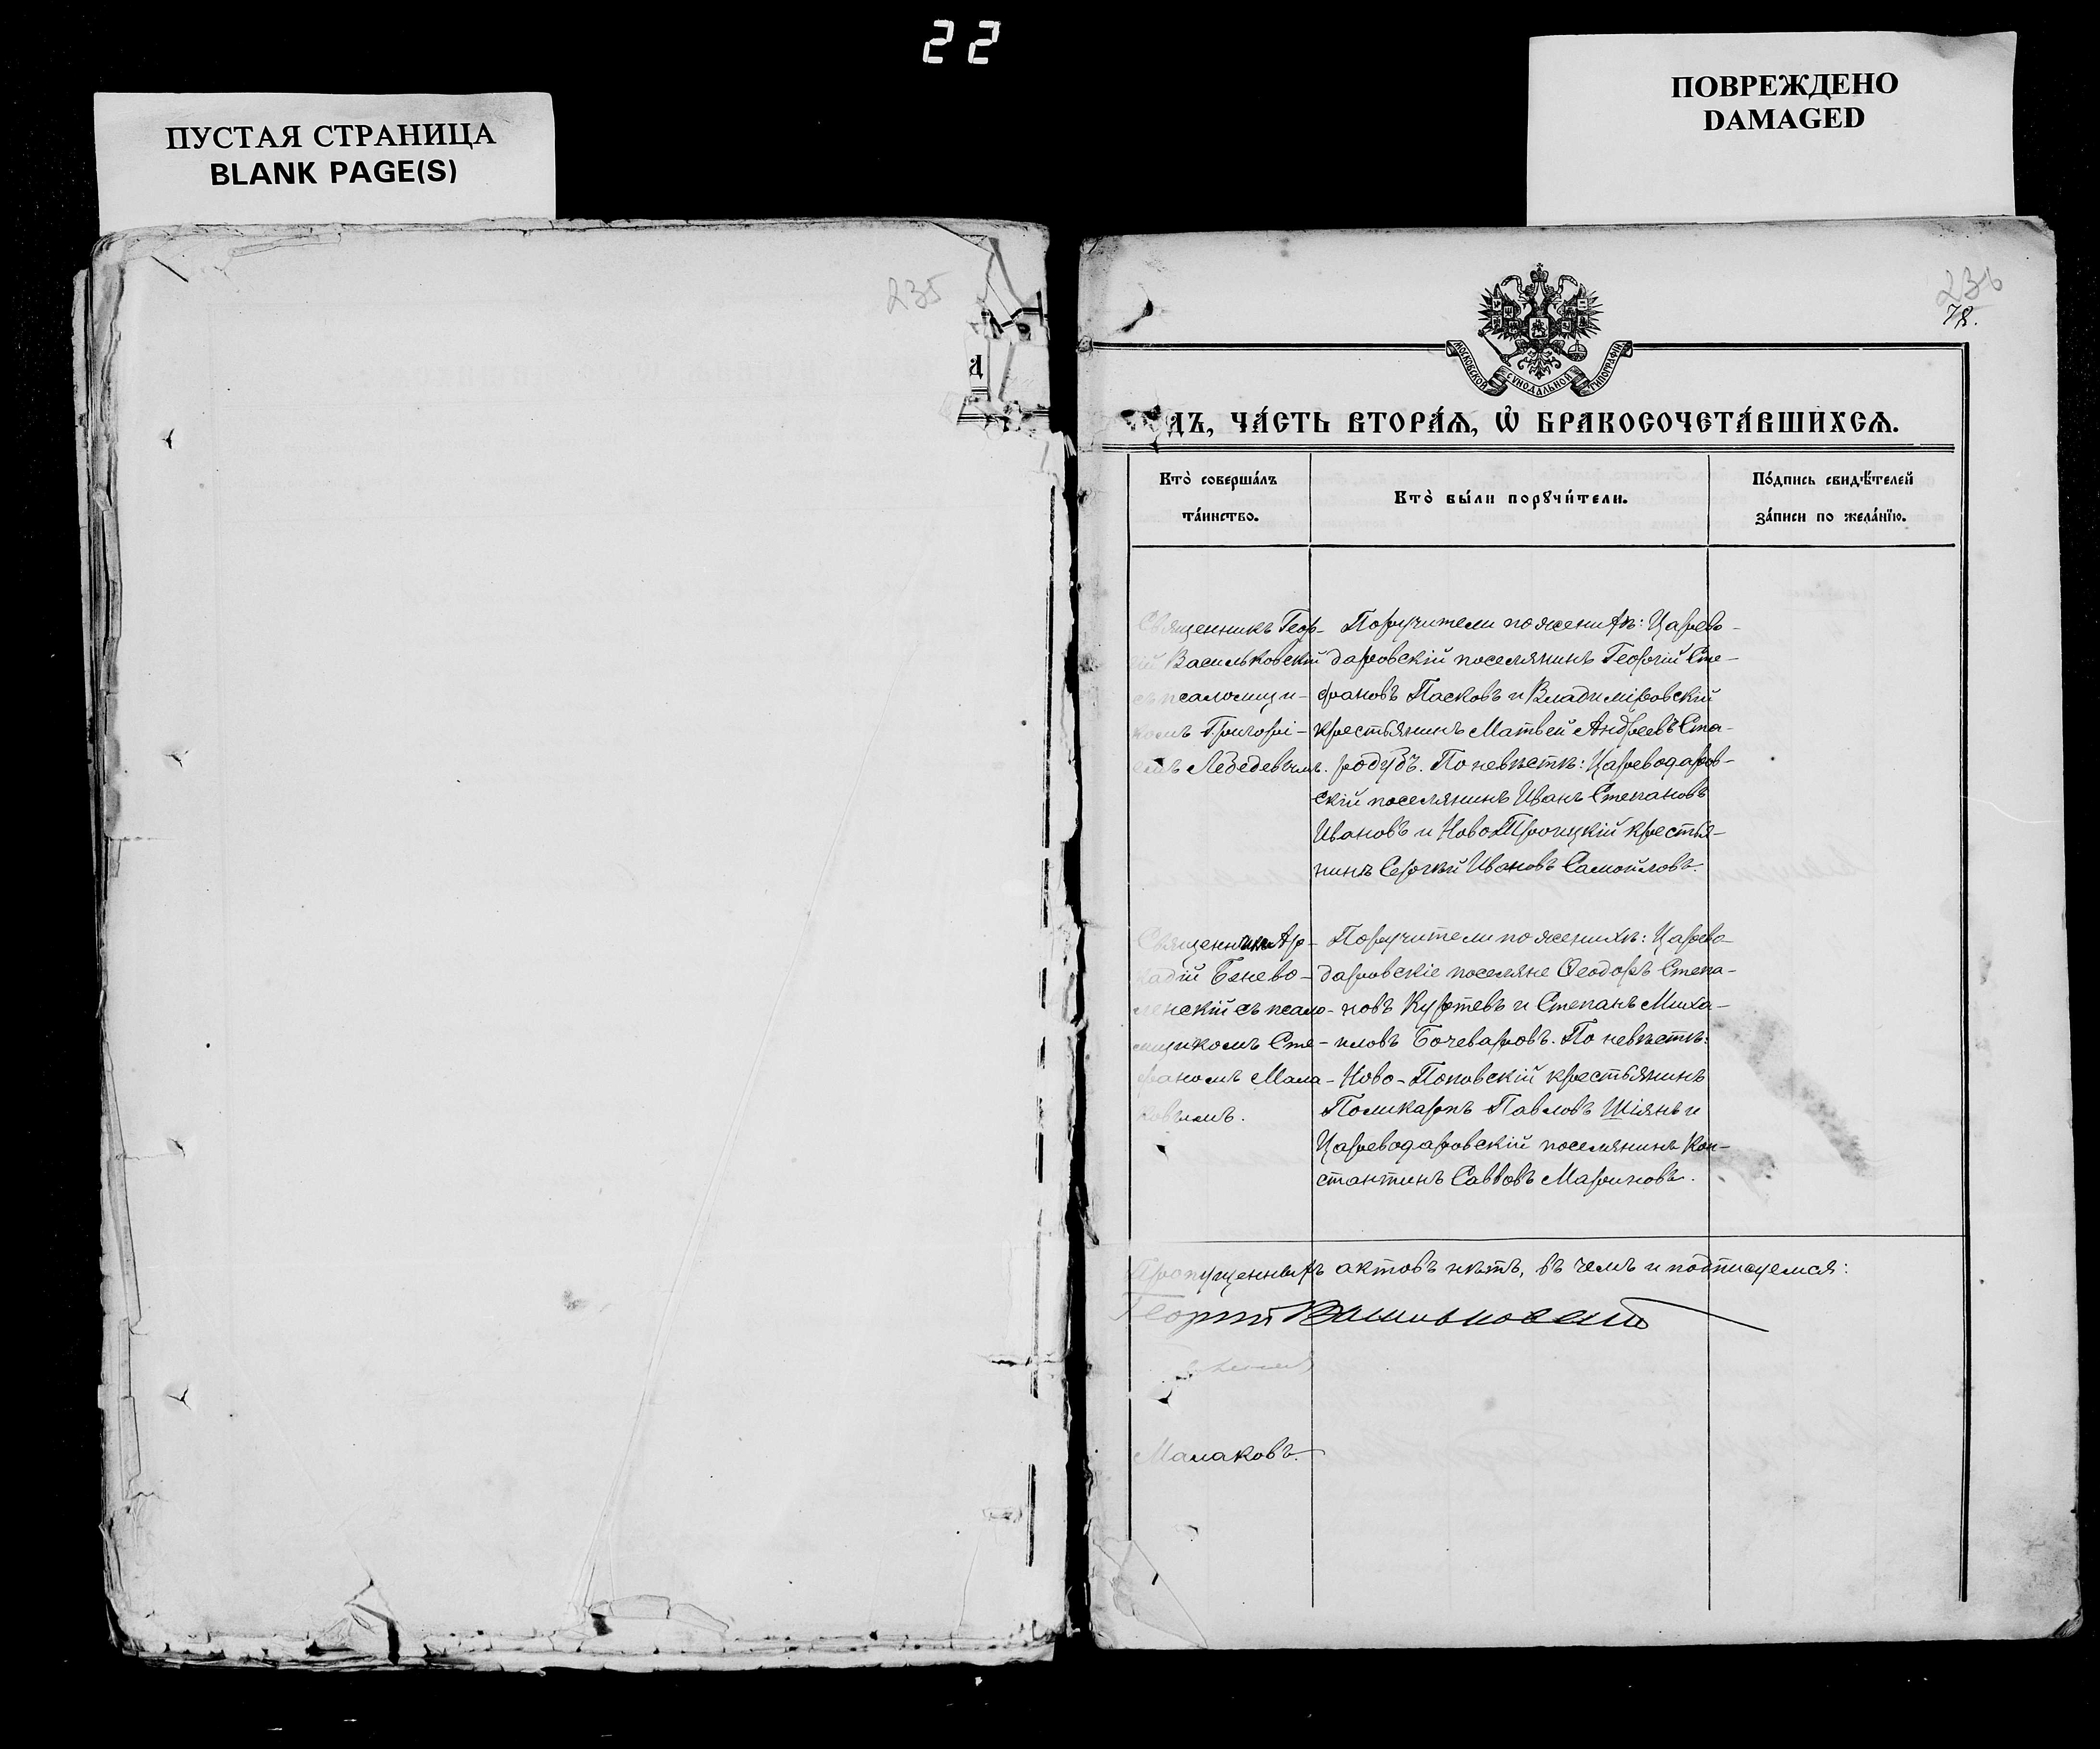 22
ПУСТАЯ СТРАНИЦА
BLANK PAGE(S)
ПОВРЕЖДЕНО
DAMAGED
235
а
236
78.
МОСКОВСКОЙ СѴНОДАЛЬНОЙ ТИПОГРАФІИ
дъ, ча́сть втора́ѧ, ѡ҆ бракосочета́вшихсѧ.
Кто̀ соверша́лъ
та́инство.
Кто̀ бы́ли порꙋчи́тели.
По́дпись свидѣ́телей
за́писи по жела́нїю.
Священникъ Геор-
гій Васильковскій
съ псаломщи-
комъ Григорі-
емъ Лебедевымъ.
Поручители по женихѣ: Царево-
даровскій поселянинъ Георгій Сте-
фановъ Пасковъ и Владиміровскій
крестьянинъ Матвей Андреевъ Ста-
родубъ. По невѣстѣ: Цареводаров-
скій поселянинъ Иванъ Степановъ
Ивановъ и НовоТроицкій крестья-
нинъ Сергѣй Ивановъ Самойловъ.
Священникъ Ар-
кадій Бѣнево-
ленскій съ псало-
мщикомъ Сте-
фаномъ Мала-
ковымъ.
Поручители по женихѣ: Царево-
даровскіе поселяне Ѳеодоръ Степа-
новъ Куртевъ и Степанъ Миха-
иловъ Бочеваровъ. По невѣстѣ:
Ново-Поповскій крестьянинъ
Поликарпъ Павловъ Шіянъ и
Цареводаровскій поселянинъ Кон-
стантинъ Савовъ Мариновъ.
Пропущенныхъ актовъ нѣтъ, въ чемъ и подписуемся:
Георгій Васильковскій
Малаковъ.